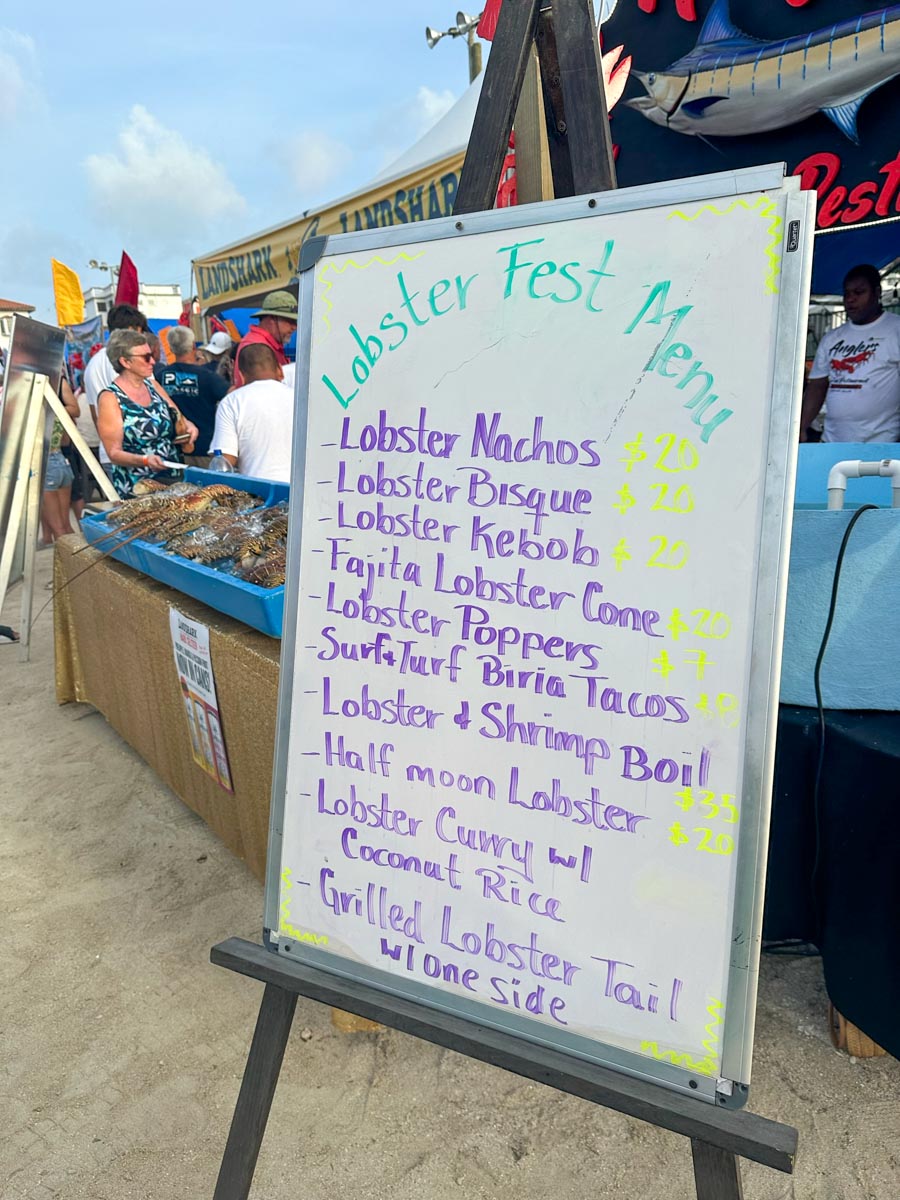 LANDSHARK
LANDSHARK
Rest
Anglers
Quartet
Lobster Fest Menu
- Lobster Nachos $20
- Lobster Bisque $20
- Lobster Kebob $20
- Fajita Lobster Cone $20
- Lobster Poppers $7
- Surf & Turf Biria Tacos $8
- Lobster & Shrimp Boil $35
- Half moon Lobster $20
- Lobster Curry w/
Coconut Rice
- Grilled Lobster Tail
w/ one side
LANDSHARK
NOW IN CANS!